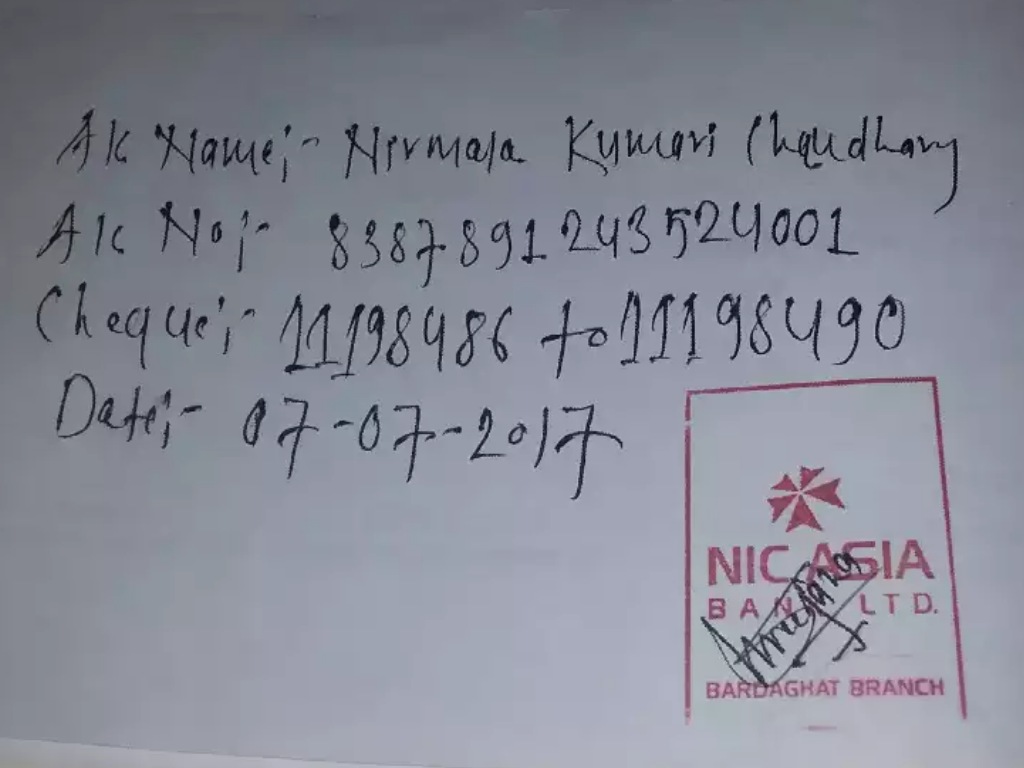 A/c Name:- Nirmala Kumari Chaudhary
A/c No:- 8387891243524001
Cheque:- 11198486 to 11198490
Date:- 07-07-2017
NIC ASIA
BANK LTD.
BARDAGHAT BRANCH